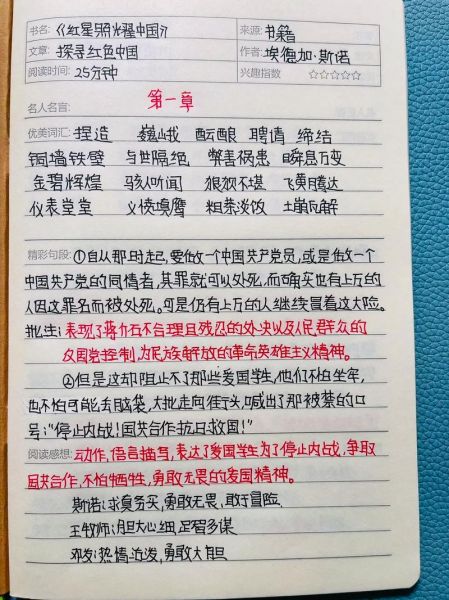 书名:《红星照耀中国》 来源:书籍
文章:探寻红色中国 作者:埃德加·斯诺
阅读时间:25分钟 兴趣指数 ☆☆☆☆☆
名人名言: 第一章
优美词汇:捏造 巍峨 酝酿 聘请 缔结
铜墙铁壁 与世隔绝 弊害祸患 瞬息万变
金碧辉煌 骇人听闻 狼狈不堪 飞黄腾达
仪表堂堂 义愤填膺 粗茶淡饭 土崩瓦解
精彩句段:①自从那时起,要做一个中国共产党员,或是做一个
中国共产党的同情者,其罪就可以处死,而确实也有上万的
人因这罪名而被处死。可是仍有上万的人继续冒着这大险。
批注:表现了蒋介石不合理且残忍的处决以及人民群众的
反国党控制,为民族解放的革命英雄主义精神。
②但是这却阻止不了那些爱国学生,他们不怕坐牢,
也不怕可能去脑袋,大批走向街头,喊出了那被禁的口
号:“停止内战!国共合作抗日救国!”
阅读感想:动作,语言描写,表达了爱国学生为了停止内战,争取
国共合作,不怕牺牲,勇敢无畏的爱国精神。
斯诺:求真务实,勇敢无畏,敢于冒险
王牧师:胆大心细,足智多谋
邓发:热情活泼,勇敢大胆